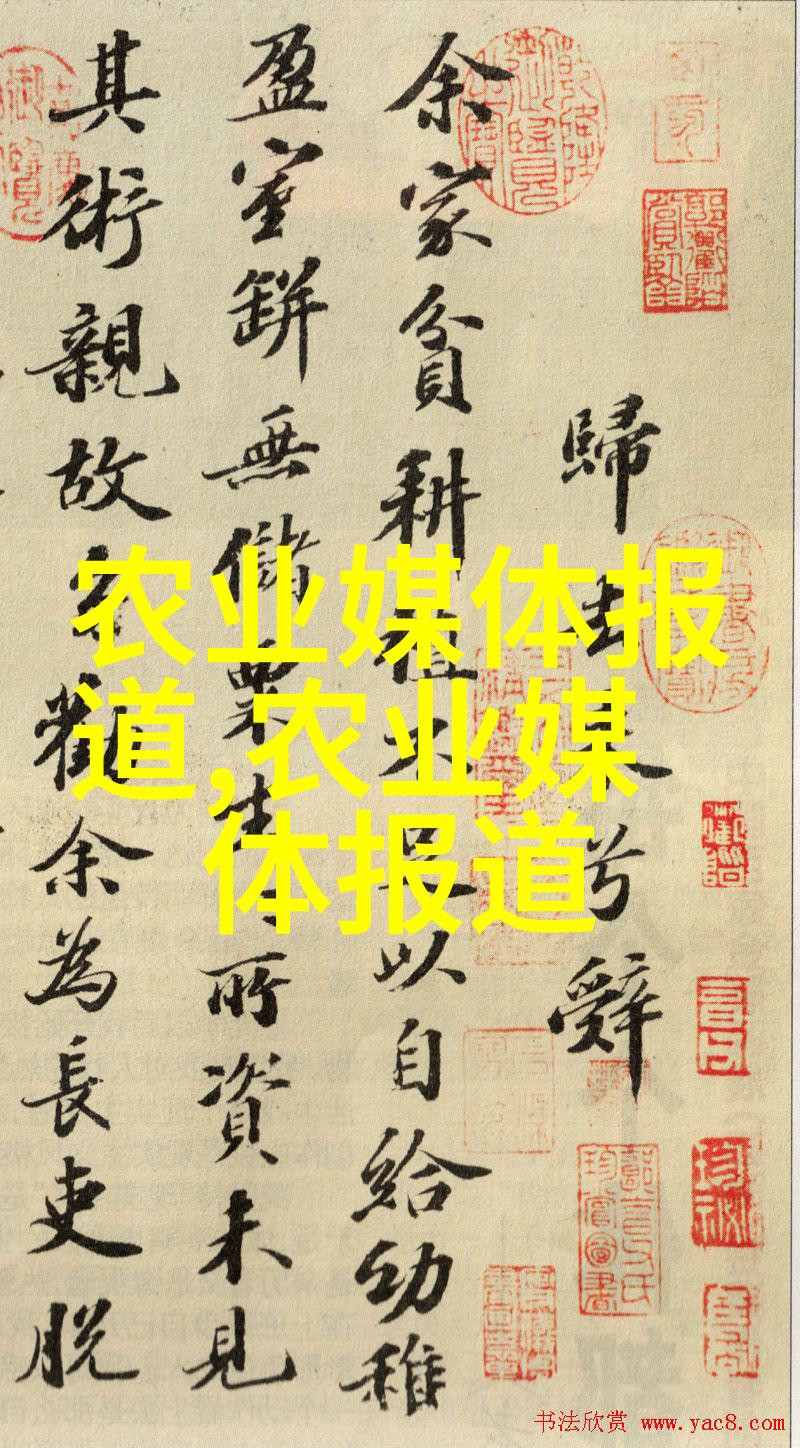 歸去来兮辞
余家貧耕植不足以自給幼稚
盈室缾無儲粟生生所資未見
其術親故多勸余為長吏脫
农业媒体报
道,农业媒
体报道
书法欣赏 www.yac8.com